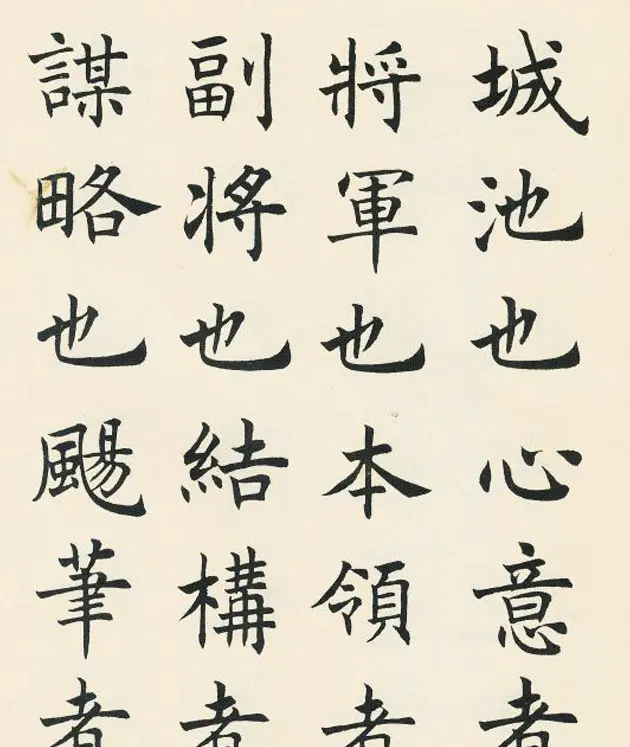 城池也心意者
將軍也本領者
副将也結構者
謀略也颺筆者